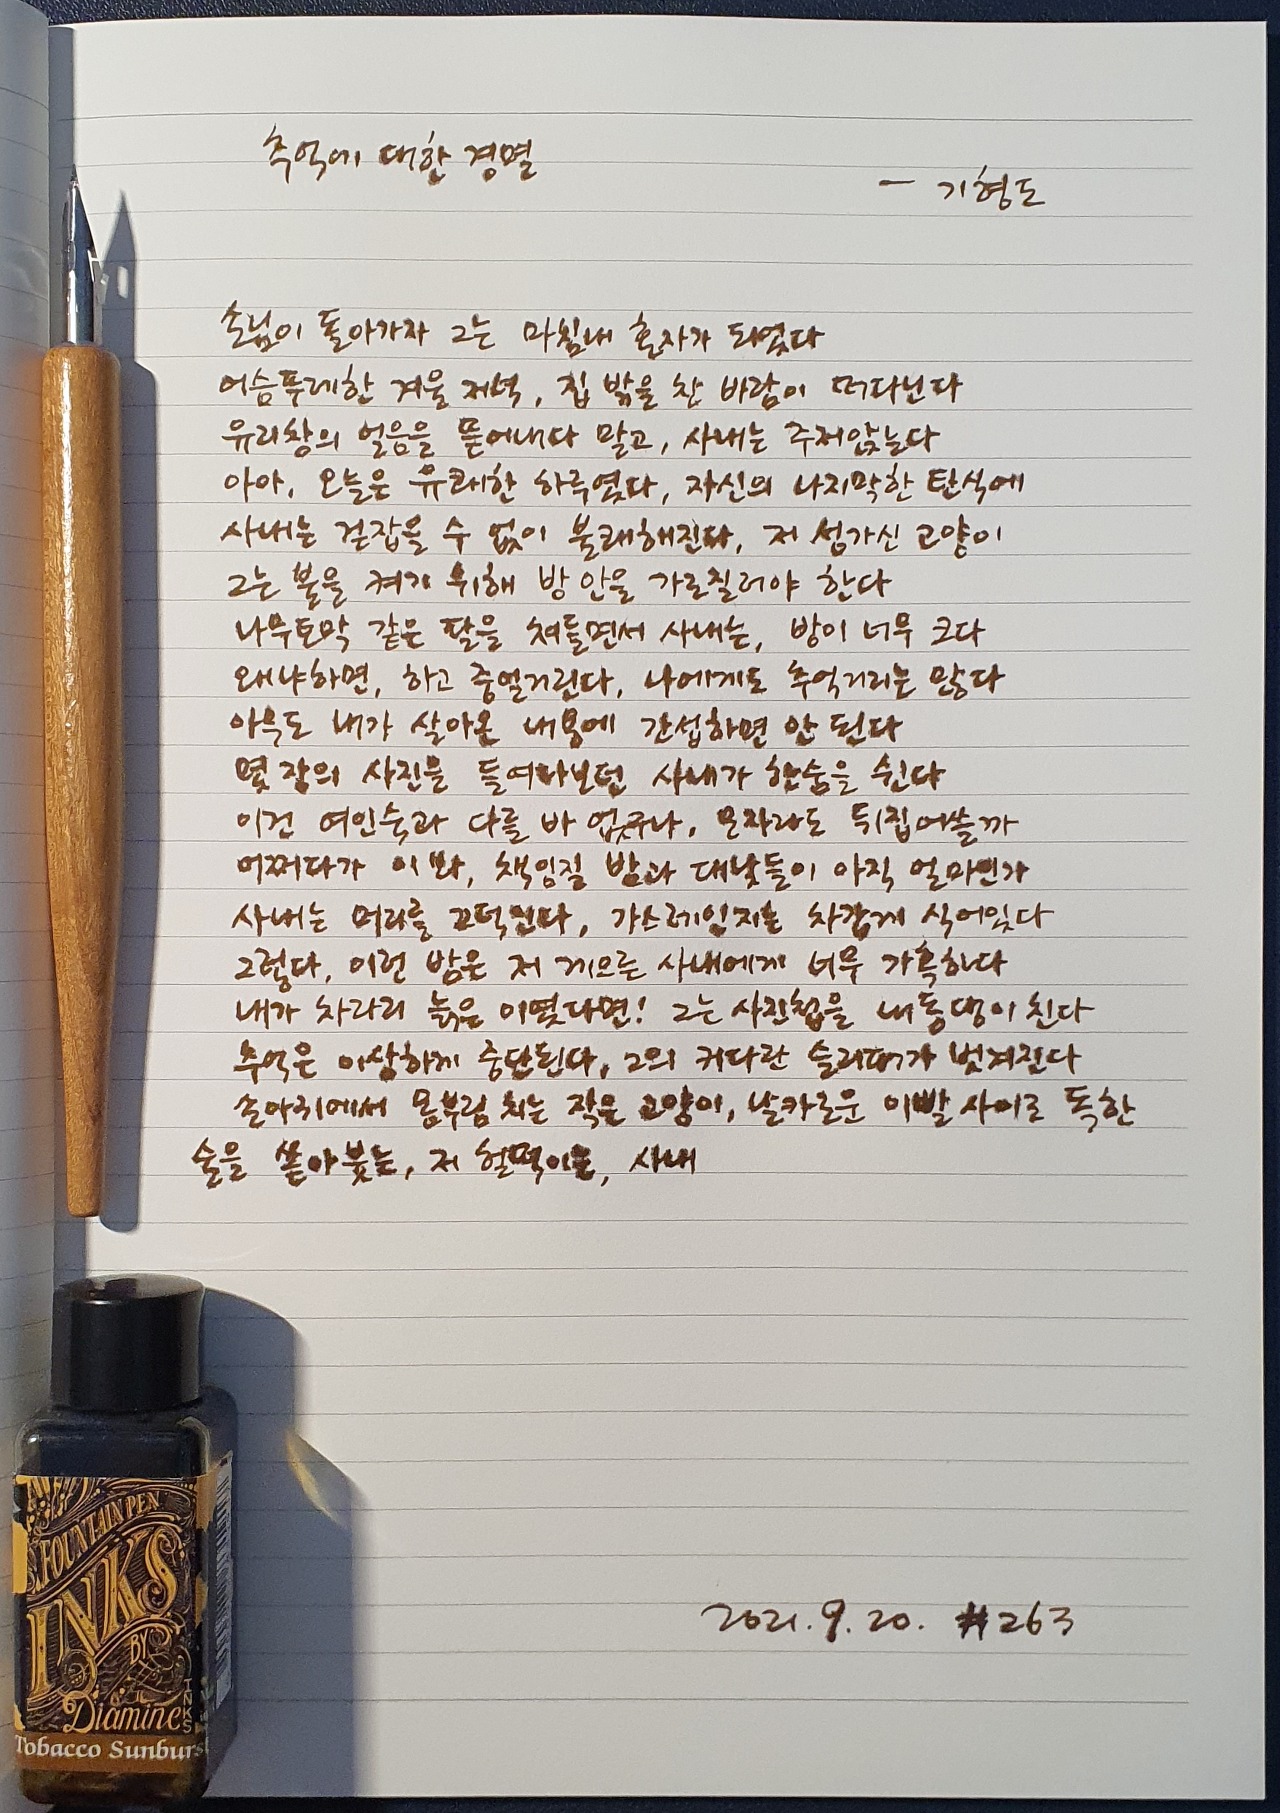 추억에 대한 경멸
- 기형도
손님이 돌아가자 그는 마침내 혼자가 되었다
어슴푸레한 겨울 저녁, 집 밖을 찬 바람이 떠다닌다
유리창의 얼음을 뜯어내다 말고, 사내는 주저앉는다
아아, 오늘은 유쾌한 하루였다, 자신의 나지막한 탄식에
사내는 걷잡을 수 없이 불쾌해진다, 저 성가신 고양이
그는 불을 켜기 위해 방 안을 가로질러야 한다
나무토막 같은 팔을 쳐들면서 사내는, 방이 너무 크다
왜냐하면, 하고 중얼거린다, 나에게도 추억거리는 많다
아무도 내가 살아온 내용에 간섭하면 안 된다
몇 장의 사진을 들여다보던 사내가 한숨을 쉰다
이건 여인숙과 다를 바 없구나, 모자라도 뒤집어쓸까
어쩌다가 이봐, 책임질 밤과 대낮들이 아직 얼마인가
사내는 머리를 끄덕인다, 가스레인지는 차갑게 식어있다
그렇다, 이런 밤은 저 게으른 사내에게 너무 가혹하다
내가 차라리 늙은이였다면! 그는 사진첩을 내동댕이친다
추억은 이상하게 중단된다, 그의 커다란 슬리퍼가 벗겨진다
손아귀에서 몸부림 치는 작은 고양이, 날카로운 이빨 사이로 독한
술을 쏟아붓는, 저 헐떡이는, 사내
2021. 9. 20. #263
FOUNTAIN PEN
INKS
BY
Diamine
INKS
Tobacco Sunburs